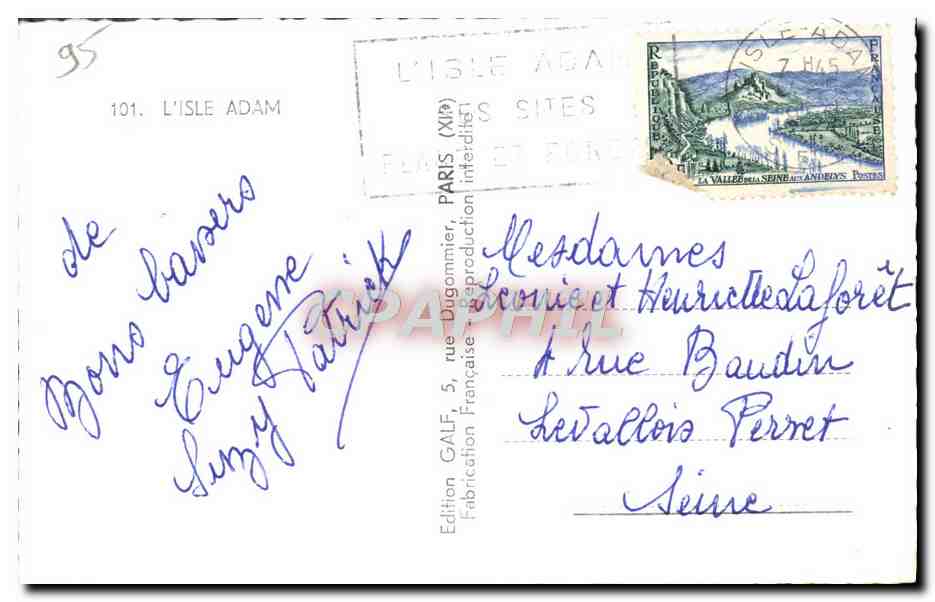 95
101. L'ISLE ADAM
L'ISLE ADAM
SITES
ET
ISLE-ADAM
7 H45
REPUBLIQUE
FRANCAISE
LA VALLEE DE LA SEINE AUX ANDELYS POSTES
de
Bons baisers
Eugene
Suzy Patrick
Edition GALF, 5, rue Dugommier, PARIS (XIIe)
Fabrication Française - Reproduction interdite
CPAPHIL
Mesdames
Leonie et Henriette Laforêt
4 rue Baudin
Levallois Perret
Seine